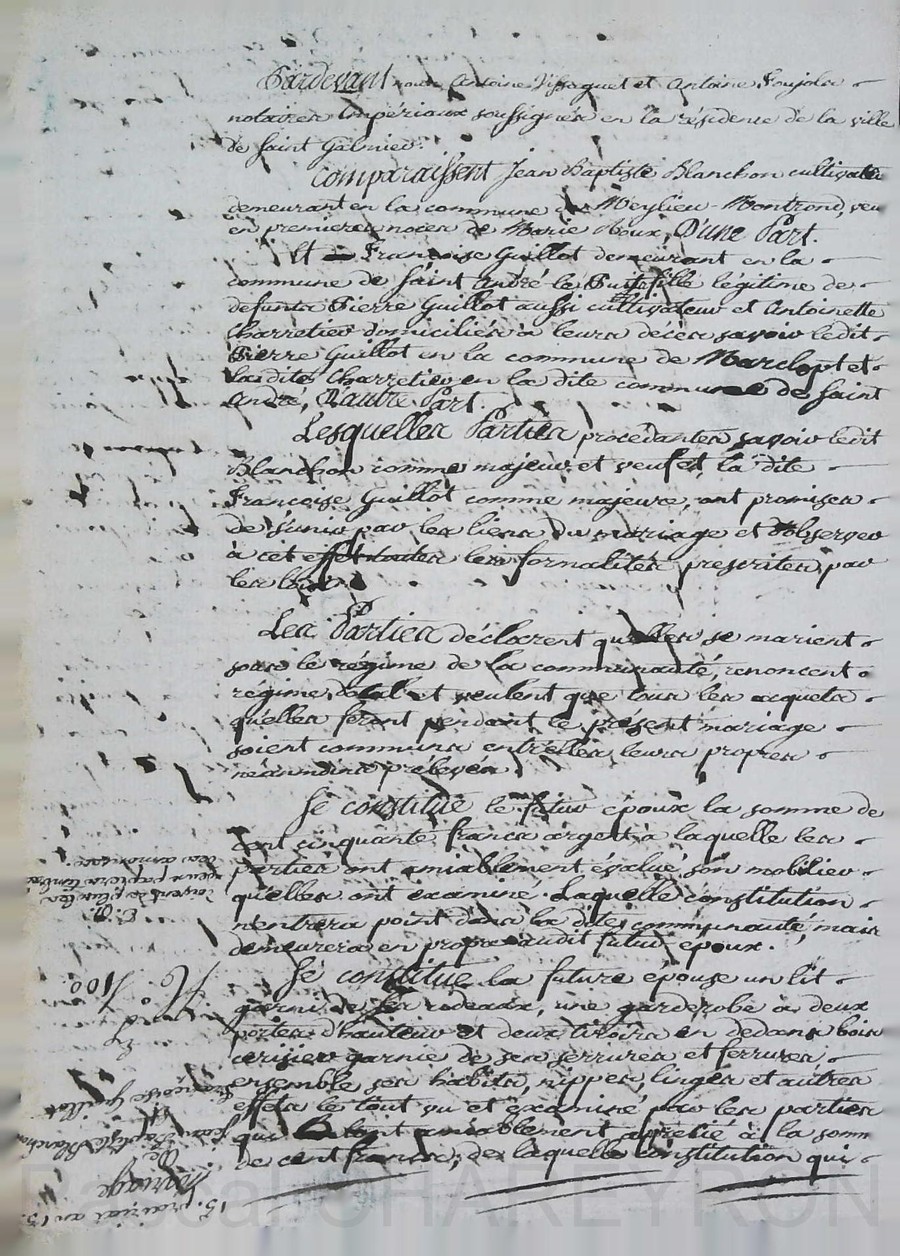 Pardevant nous Antoine Vissaguet et Antoine Foujols
notaires Impériaux soussignés en la résidence de la ville
de Saint Galmier.
Comparaissent Jean Baptiste Blanchon cultivateur
demeurant en la commune de Meylieu-Montrond, veu
en premieres noces de Marie Roux, D'une Part.
Et Françoise Guillot demeurant en la
commune de Saint André le Puit fille légitime de
defunts Pierre Guillot aussi cultivateur et Antoinette
Charretier domiciliés à leurs décès savoir ledit
Pierre Guillot en la commune de Marclopt et
Ladite Charretier en la dite commune de Saint
André, D'autre Part.
Lesquelles Parties procédantes savoir ledit
Blanchon comme majeur et veuf et la dite
Françoise Guillot comme majeure, ont promises
de s'unir par les liens du mariage et d'observer
à cet effet toutes les formalités prescrites par
les lois.
Les Parties déclarent quelles se marient
sous le régime de la communauté, renoncent
régime dotal et veulent que tous les acquets
qu'elles feront pendant le présent mariage
soient communs entr'elles, leurs propres
néanmoins prélevés.
Se constitue le futur epoux la somme de
cent cinquante francs argent à laquelle les
parties ont amiablement évalué son mobilier
qu'elles ont examiné. Laquelle constitution
n'entrera point dans la dite communauté, mais
demeurera en propre audit futur epoux.
Se constitue la future epouse un lit
garni de ses rideaux, une garderobe à deux
portes d'hauteur et deux tiroirs en dedans bois
cerisier garnie de ses serrures et ferrures
ensemble ses habits, nippes, linges et autres
effets le tout vu et examiné par les parties
qui l'ont amiablement aprécié à la somm
de cent francs; de laquelle constitution qui
15. prairial an 13.
Mariage
De
Jean Baptiste Blanchon
et
Françoise Guillot
Pascal CHAREYRON